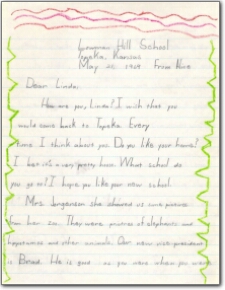 Lowman Hill School
Topeka, Kansas
May 20, 1969 From Alice
Dear Linda,
How are you, Linda? I wish that you
would come back to Topeka. Every
time I think about you. Do you like your home?
I bet it's a very pretty home. What school do
you go to? I hope you like your new school.
Mrs. Jorgensen she showed us some pictures
from her zoo. They were pictures of elephants and
hippotamus and other animals. Our new vice-president
is Brad. He is good as you were when you were